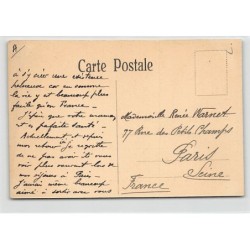 Carte Postale
à s'y créer une existence
heureuse car en somme
la vie y est beaucoup plus
facile qu'en France —
J'espère que votre maman
est en parfaite santé —
Actuellement et depuis
mon retour je regrette
de ne pas avoir été vous
voir plus souvent lors de
mon séjour à Paris —
J'aurais même beaucoup
aimé à sortir avec vous
Mademoiselle Renée Warnet
77 Rue des Petits Champs
Paris
Seine
France